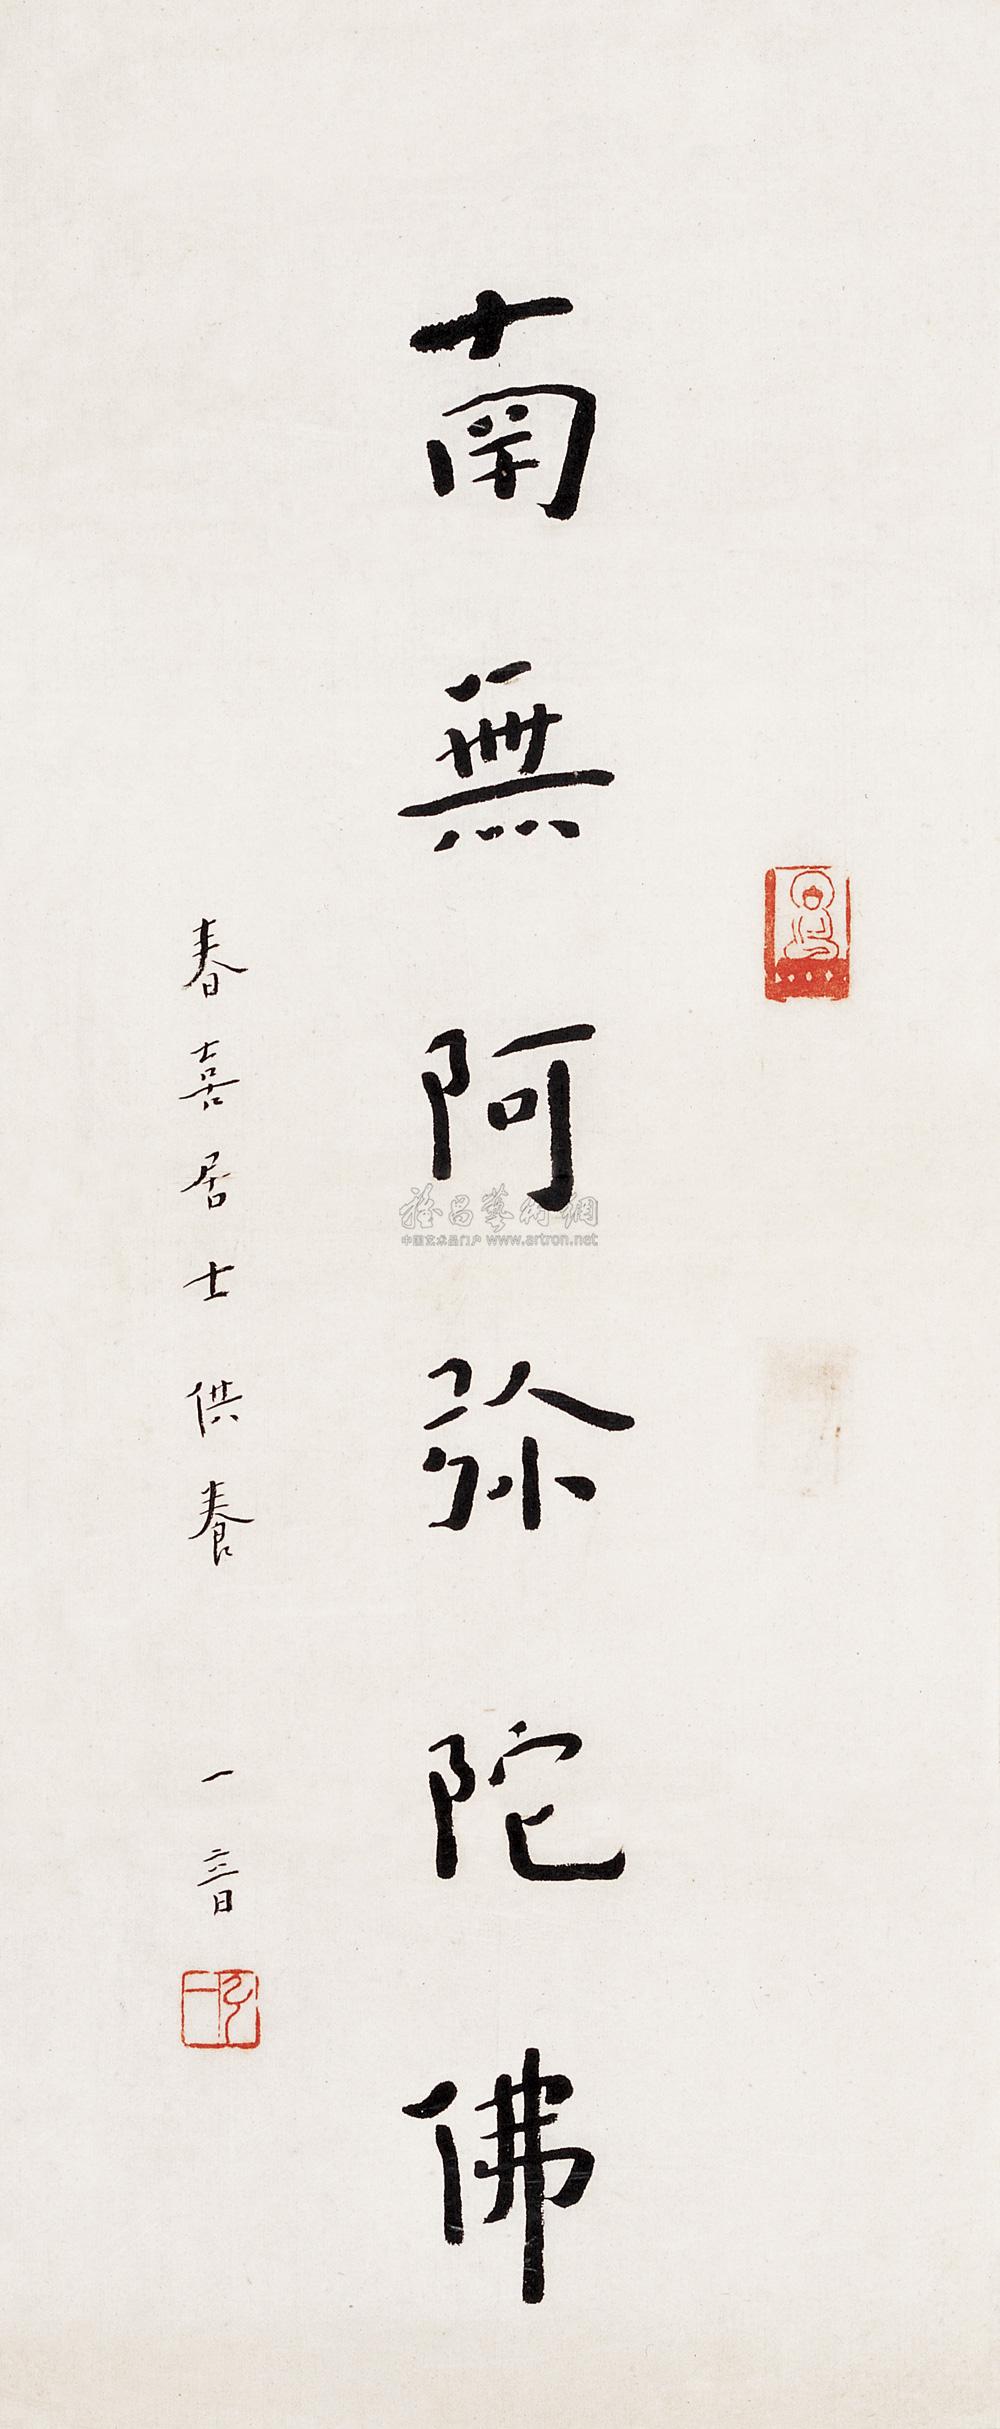 南無阿弥陀佛
春喜居士供養 一音
雅昌藝術網
中国艺术品门户 www.artron.net